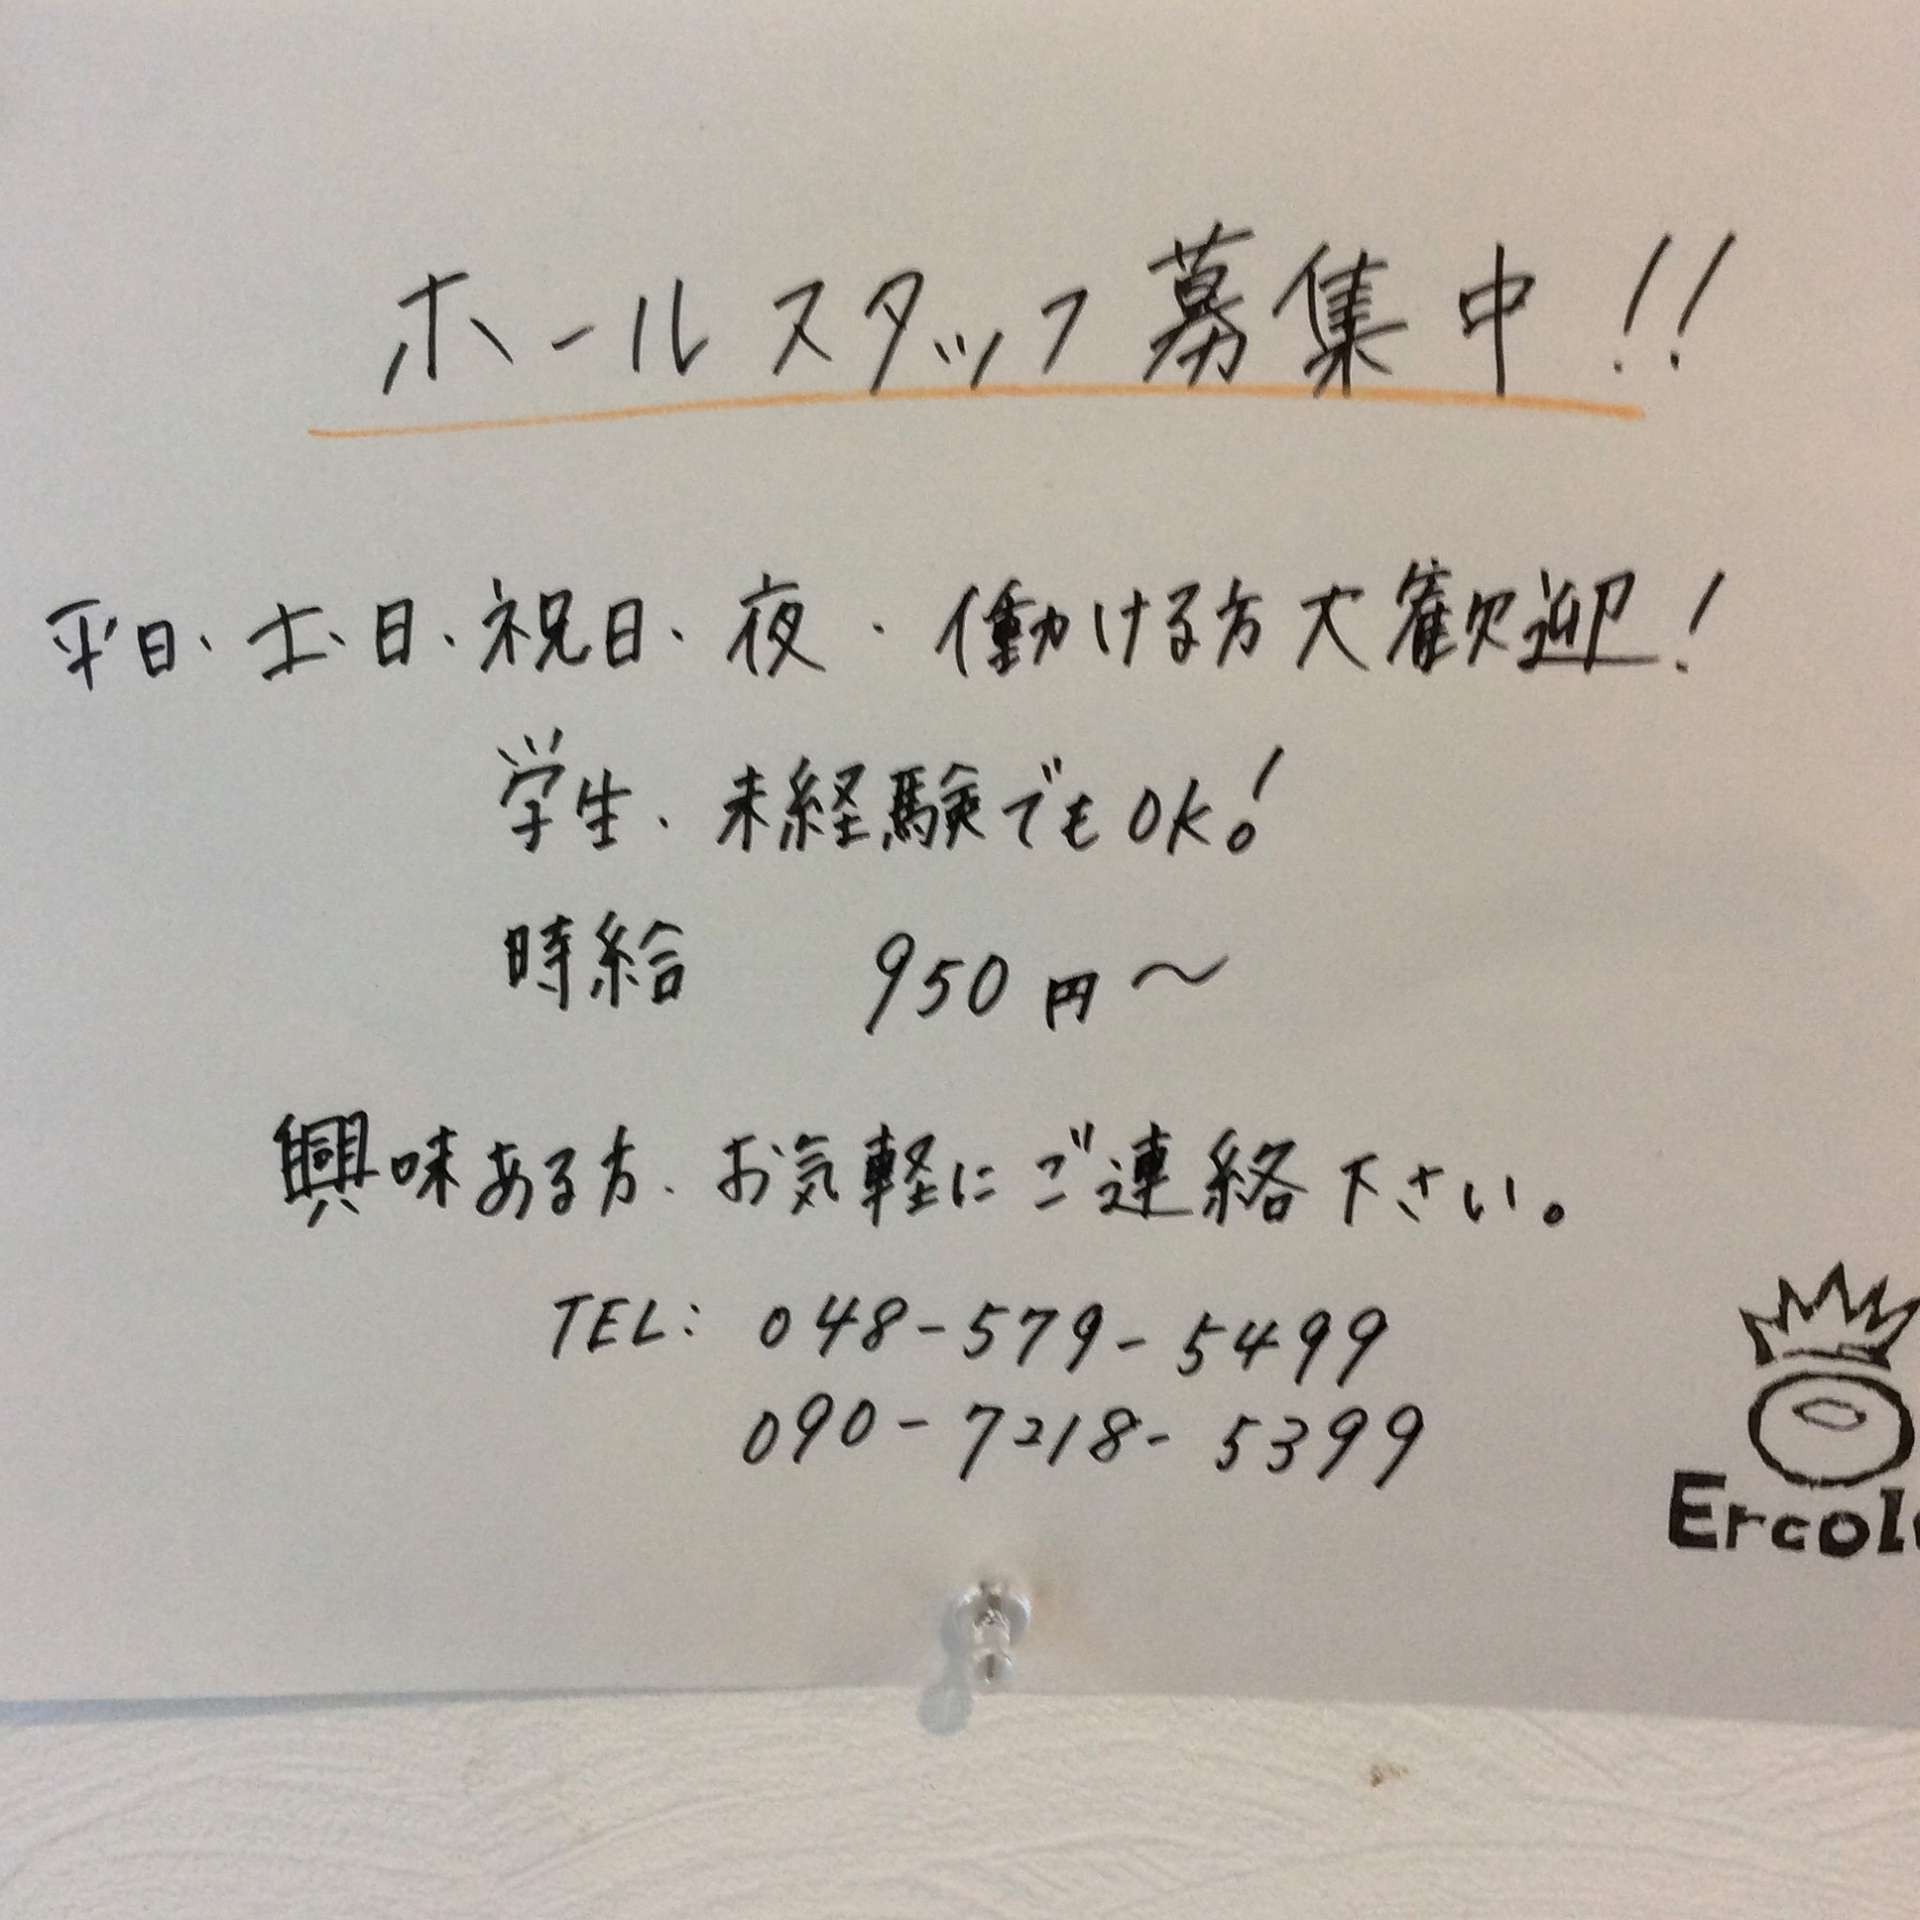 ホールスタッフ募集中!!
平日、土、日、祝日、夜、働ける方大歓迎!
学生、未経験でもOK!
時給 950円〜
興味ある方、お気軽にご連絡下さい。
TEL: 048-579-5499
090-7218-5399
Ercol